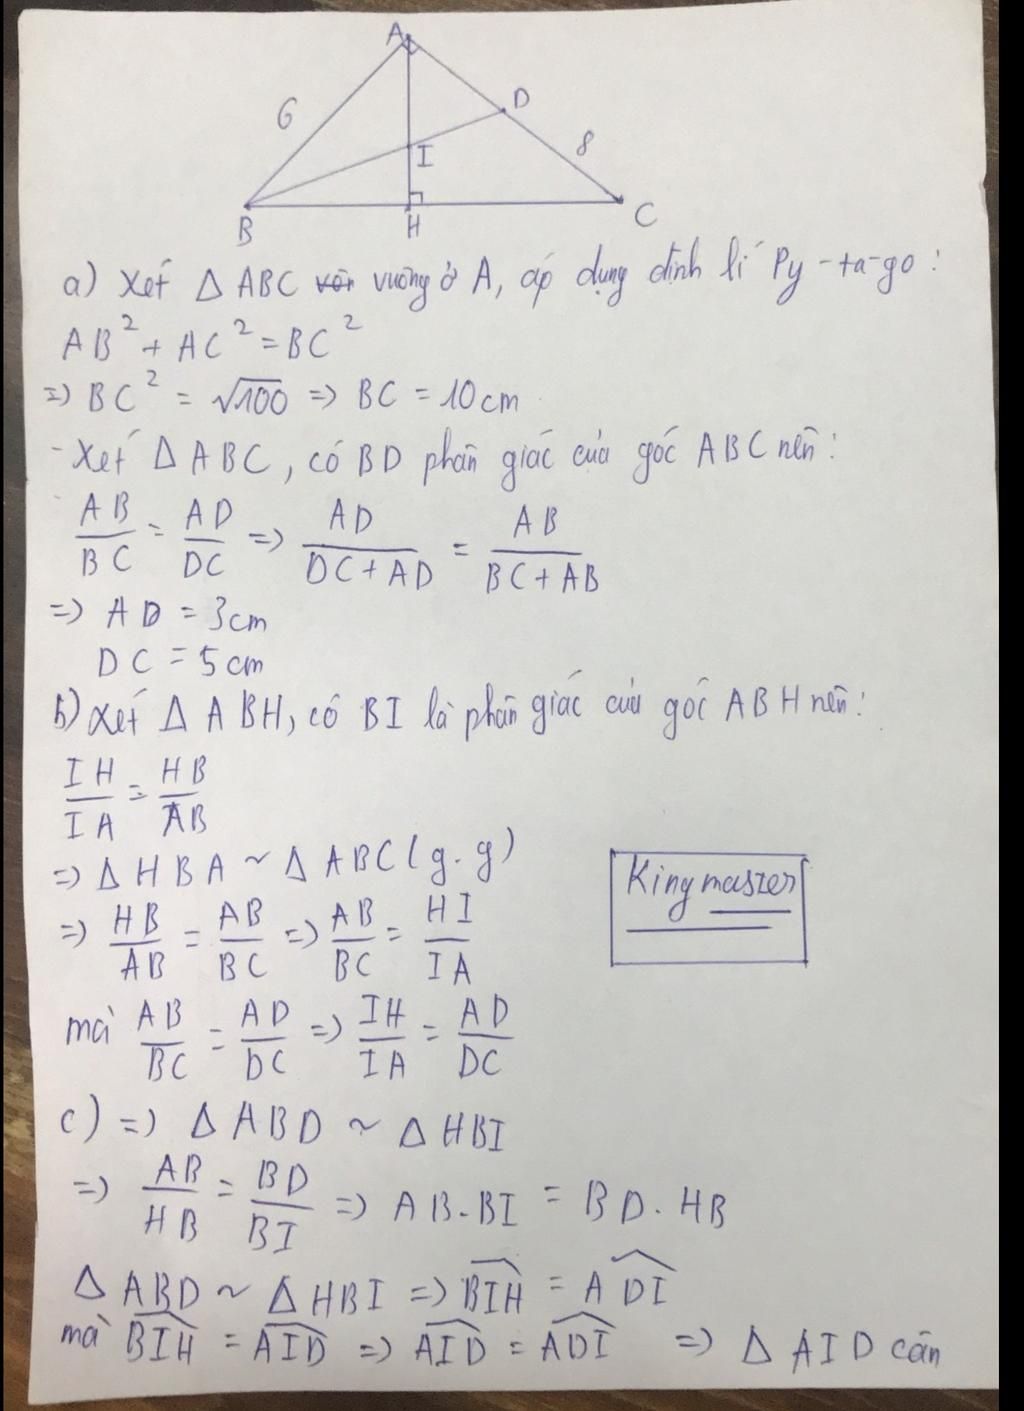 A
6
D
8
I
B
H
C
a) Xét Δ ABC vuông ở A, áp dụng định lí Py-ta-go:
AB² + AC² = BC²
=> BC² = √100 => BC = 10cm
- Xét Δ ABC, có BD phân giác của góc ABC nên:
AB/BC = AD/DC => AD/(DC + AD) = AB/(BC + AB)
=> AD = 3cm
DC = 5cm
b) Xét Δ ABH, có BI là phân giác của góc ABH nên:
IH/IA = HB/AB
=> Δ HBA ~ Δ ABC (g.g)
Kingmaster
=> HB/AB = AB/BC => AB/BC = HI/IA
mà AB/BC = AD/DC => IH/IA = AD/DC
c) => Δ ABD ~ Δ HBI
=> AB/HB = BD/BI => AB.BI = BD.HB
Δ ABD ~ Δ HBI => BIH^ = ADI^
mà BIH^ = AID^ => AID^ = ADI^ => Δ AID cân